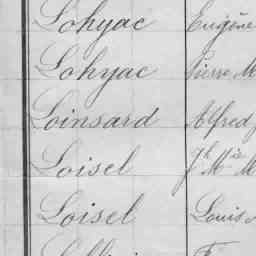 Lohyac Eugène
Lohyac Pierre M
Loinsard Alfred J
Loisel Jh Mie M
Loisel Louis